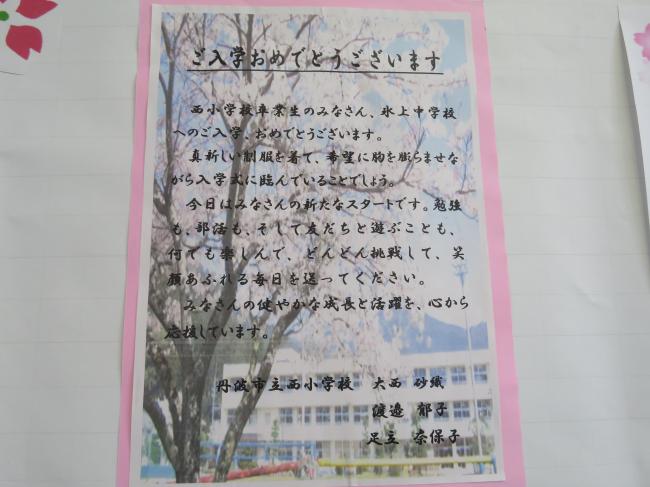 ご入学おめでとうございます
西小学校卒業生のみなさん、氷上中学校
へのご入学、おめでとうございます。
真新しい制服を着て、希望に胸を膨らませな
がら入学式に臨んでいることでしょう。
今日はみなさんの新たなスタートです。勉強
も、部活も、そして友だちと遊ぶことも、
何でも楽しんで、どんどん挑戦して、笑
顔あふれる毎日を送ってください。
みなさんの健やかな成長と活躍を、心から
応援しています。
丹波市立西小学校 大西 砂織
渡邉 郁子
足立 奈保子